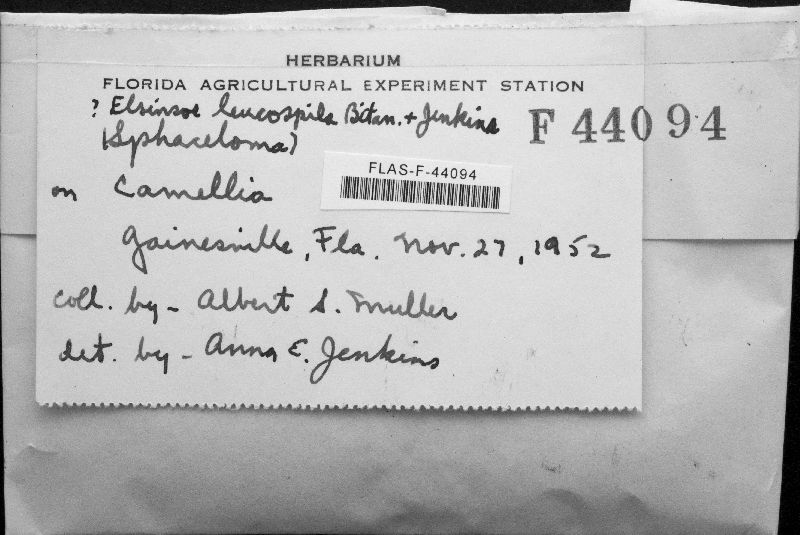 HERBARIUM
FLORIDA AGRICULTURAL EXPERIMENT STATION
? Elsinoe leucospila Bitan. + Jenkins
(Sphaceloma)
F 44094
FLAS-F-44094
on Camellia
Gainesville, Fla. Nov. 27, 1952
coll. by - Albert S. Muller
det. by - Anna E. Jenkins